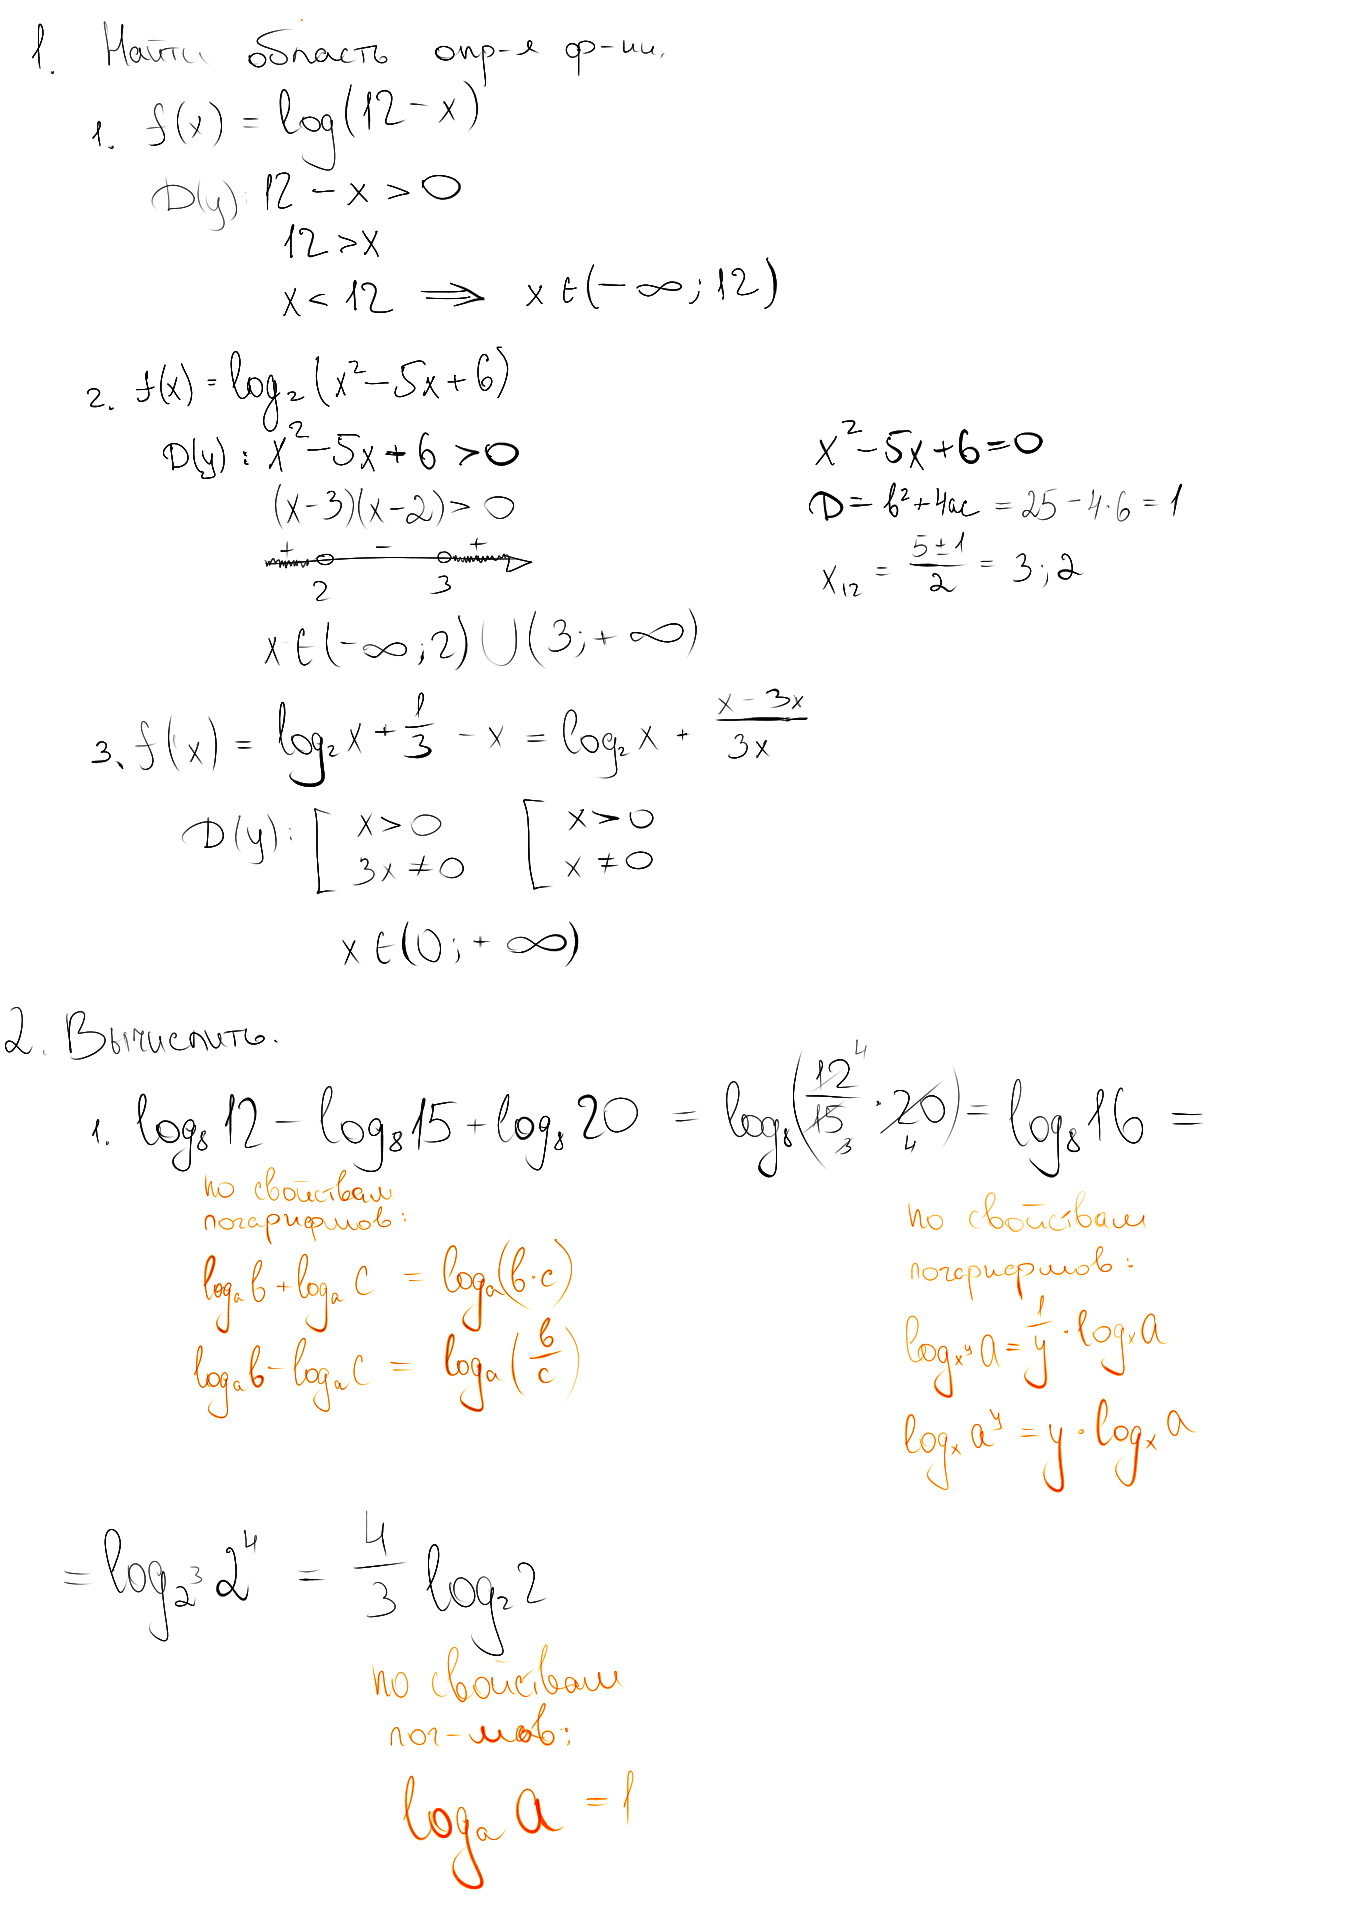 1. Найти область опр-я ф-ии.
1. f(x) = log(12 - x)
D(y): 12 - x > 0
12 > x
x < 12 ⟹ x ∈ (-∞; 12)
2. f(x) = log₂(x² - 5x + 6)
D(y): x² - 5x + 6 > 0
(x-3)(x-2) > 0
+ - +
2 3
x ∈ (-∞; 2) ∪ (3; +∞)
x² - 5x + 6 = 0
D = b² + 4ac = 25 - 4·6 = 1
x₁₂ = (5 ± 1)/2 = 3; 2
3. f(x) = log₂x + 1/3 - x = log₂x + (x - 3x)/(3x)
D(y): [ x > 0 [ x > 0
3x ≠ 0 x ≠ 0
x ∈ (0; +∞)
2. Вычислить.
1. log₈12 - log₈15 + log₈20 = log₈(12⁴/15₃ · 20₄) = log₈16 =
по свойствам
логарифмов:
logₐb + logₐc = logₐ(b·c)
logₐb - logₐc = logₐ(b/c)
по свойствам
логарифмов:
log_{x^y} a = 1/y · logₓa
logₓa^y = y · logₓa
= log_{2³} 2⁴ = 4/3 log₂2
по свойствам
лог-мов:
logₐa = 1